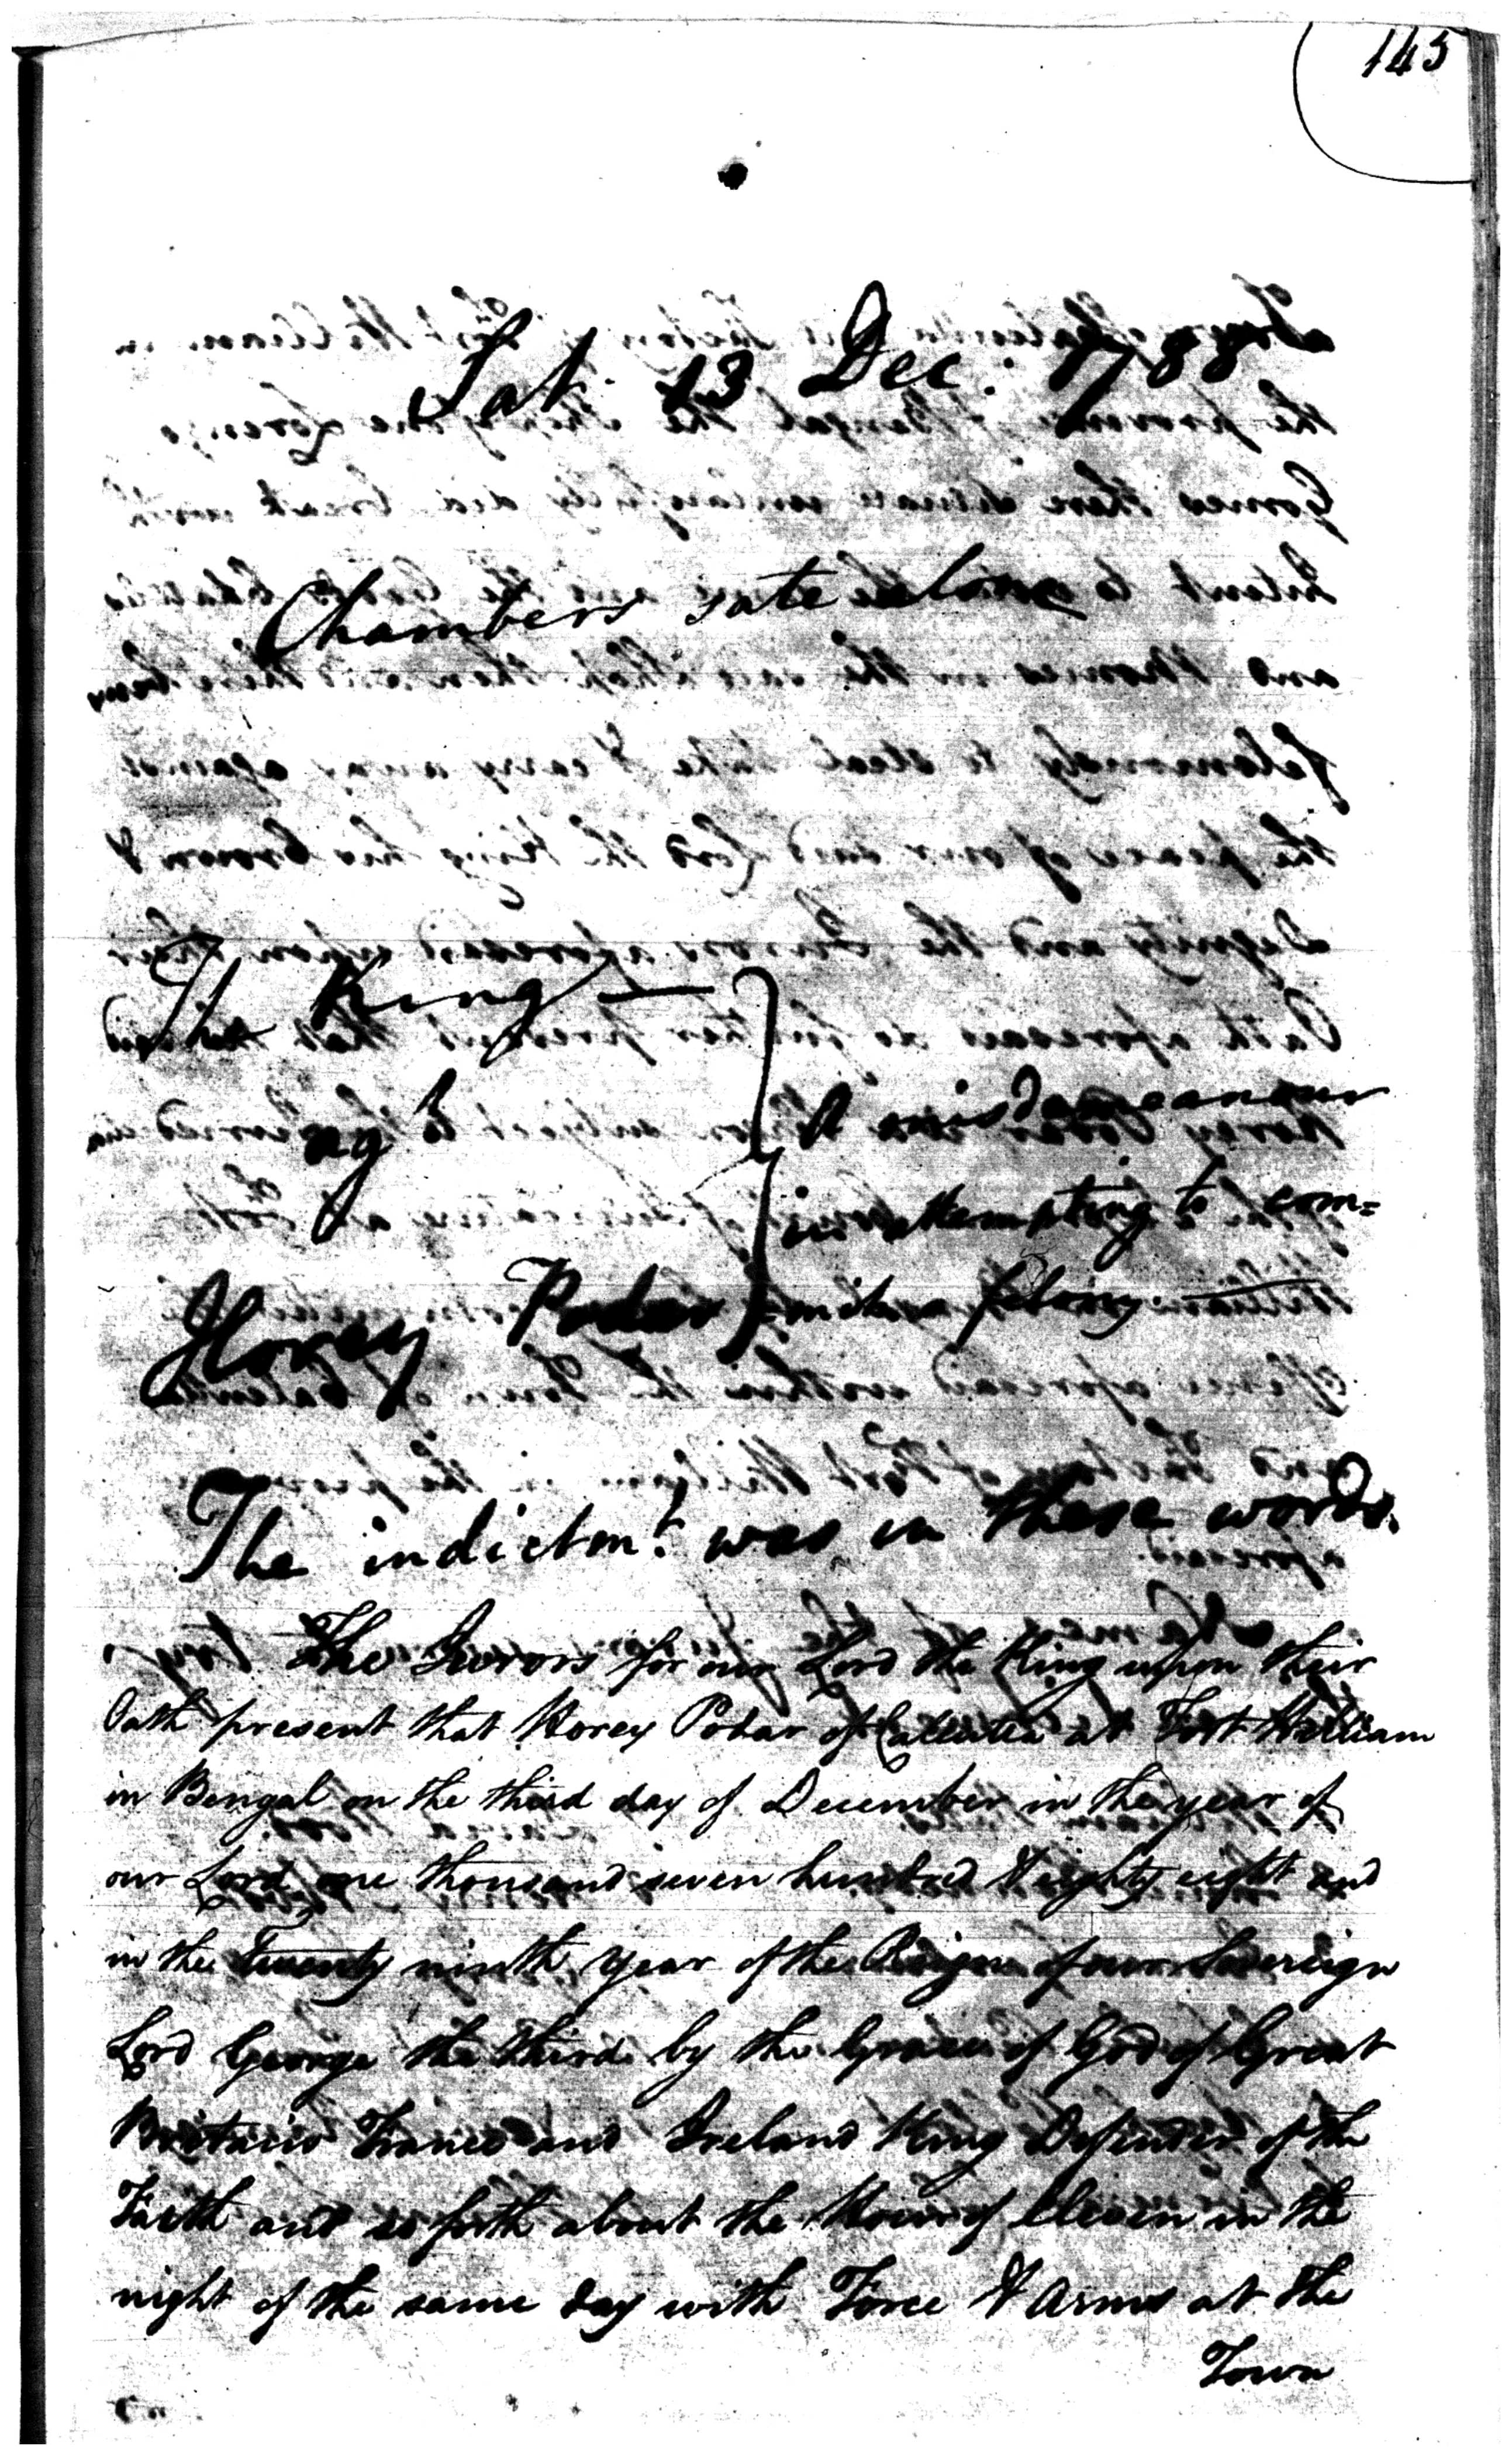 145
Sat. 13 Dec: 1788
Chambers sate alone
The King —
agt
A misdemeanour
in attempting to com=
Horey Podar
=mit a felony —
The indictmt. was in these words.
The Jurors for our Lord the King upon their
Oath present that Horey Podar of Calcutta at Fort William
in Bengal on the third day of December in the year of
our Lord one thousand seven hundred & eighty eight and
in the Twenty ninth year of the Reign of our Sovereign
Lord George the third by the Grace of God of Great
Britain France and Ireland King Defender of the
Faith and so forth about the Hour of Eleven in the
night of the same day with Force & Arms at the
Town